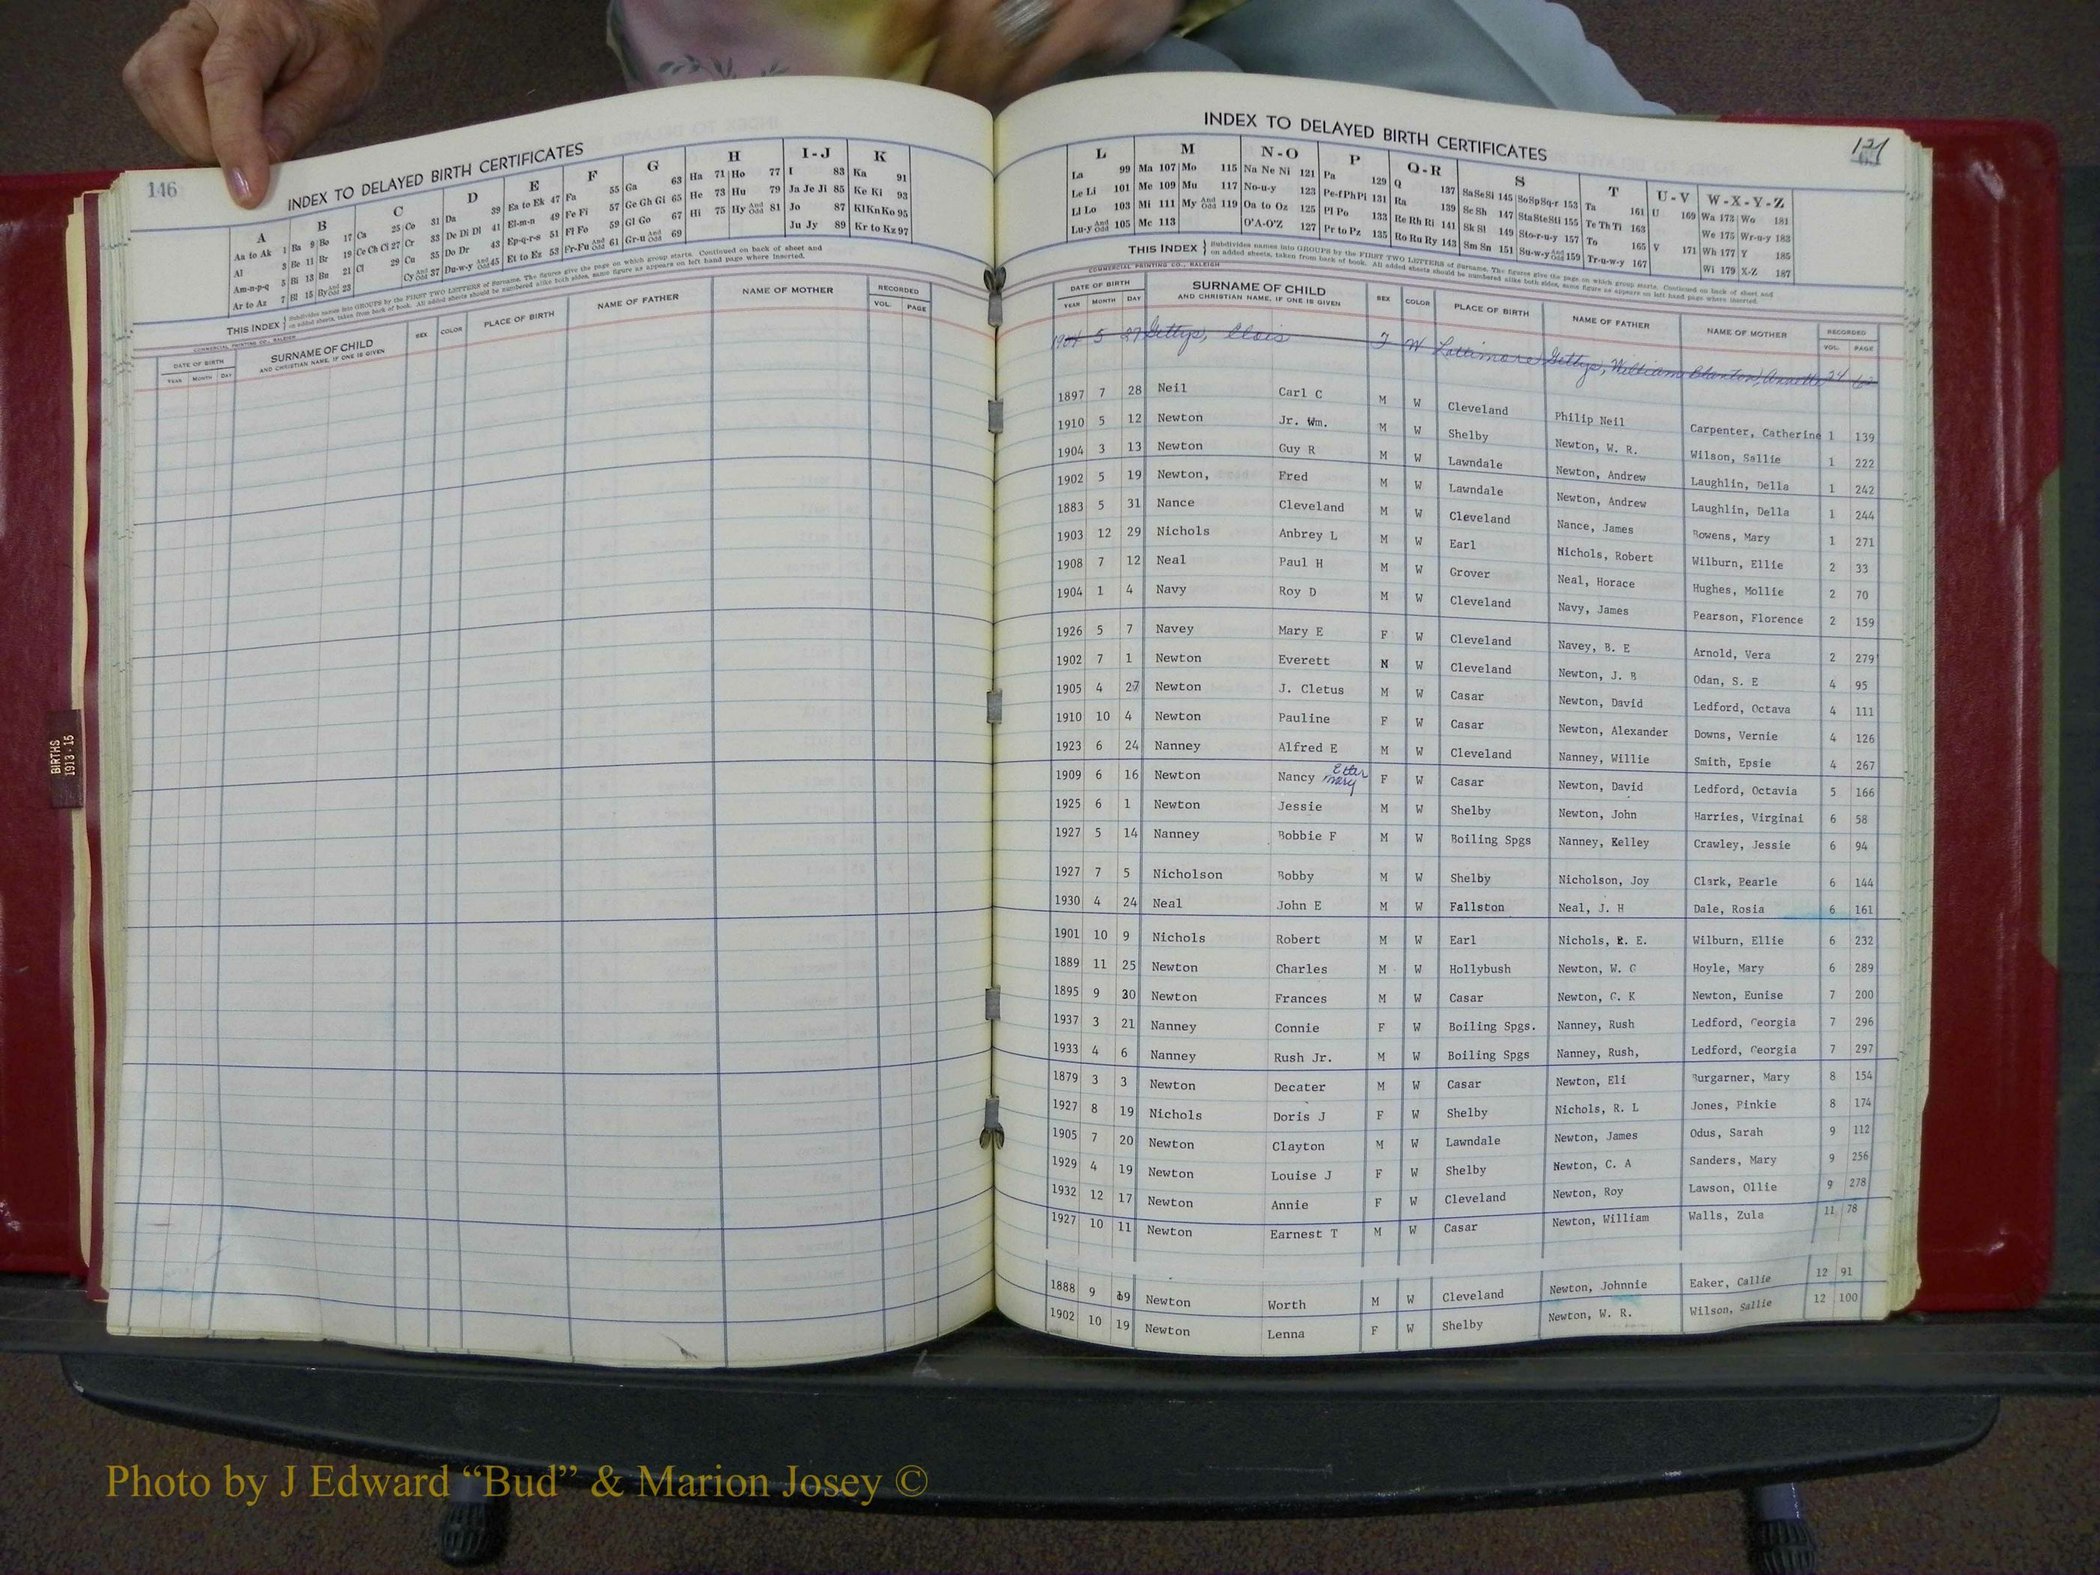 146
INDEX TO DELAYED BIRTH CERTIFICATES
A B C D E F G H I-J K
Aa to Ak 1 Ba 9 Bo 17 Ca 25 Co 31 Da 39 Ea to Ek 47 Fa 55 Ga 63 Ha 71 Ho 77 I 83 Ka 91
Al 3 Be 11 Br 19 Ce Ch Ci 27 Cr 33 De Di Dl 41 El-m-n 49 Fe Fi 57 Ge Gh Gi 65 He 73 Hu 79 Ja Je Ji 85 Ke Ki 93
Am-n-p-q 5 Bi 13 Bu 21 Cl 29 Cu 35 Do Dr 43 Ep-q-r-s 51 Fl Fo 59 Gl Go 67 Hi 75 Hy And Odd 81 Jo 87 Kl Kn Ko 95
Ar to Az 7 Bl 15 By And Odd 23 Cy And Odd 37 Du-w-y And Odd 45 Et to Ez 53 Fr-Fu And Odd 61 Gr-u And Odd 69 Ju Jy 89 Kr to Kz 97
THIS INDEX { Subdivides names into GROUPS by the FIRST TWO LETTERS of Surname. The figures give the page on which group starts. Continued on back of sheet and
on added sheets, taken from back of book. All added sheets should be numbered alike both sides, same figure as appears on left hand page where inserted.
COMMERCIAL PRINTING CO., RALEIGH
DATE OF BIRTH SURNAME OF CHILD SEX COLOR PLACE OF BIRTH NAME OF FATHER NAME OF MOTHER RECORDED
YEAR MONTH DAY AND CHRISTIAN NAME, IF ONE IS GIVEN VOL. PAGE
BIRTHS
1913-15
INDEX TO DELAYED BIRTH CERTIFICATES
121
L M N-O P Q-R S T U-V W-X-Y-Z
La 99 Ma 107 Mo 115 Na Ne Ni 121 Pa 129 Q 137 Sa Se Si 145 So Sp Sq-r 153 Ta 161 U 169 Wa 173 Wo 181
Le Li 101 Me 109 Mu 117 No-u-y 123 Pe-f Ph Pi 131 Ra 139 Sc Sh 147 Sta Ste Sti 155 Te Th Ti 163 We 175 Wr-u-y 183
Ll Lo 103 Mi 111 My And Odd 119 Oa to Oz 125 Pl Po 133 Re Rh Ri 141 Sk Sl 149 Sto-r-u-y 157 To 165 V 171 Wh 177 Y 185
Lu-y And Odd 105 Mc 113 O'A-O'Z 127 Pr to Pz 135 Ro Ru Ry 143 Sm Sn 151 Su-w-y And Odd 159 Tr-u-w-y 167 Wi 179 X-Z 187
THIS INDEX { Subdivides names into GROUPS by the FIRST TWO LETTERS of Surname. The figures give the page on which group starts. Continued on back of sheet and
on added sheets, taken from back of book. All added sheets should be numbered alike both sides, same figure as appears on left hand page where inserted.
COMMERCIAL PRINTING CO., RALEIGH
DATE OF BIRTH SURNAME OF CHILD SEX COLOR PLACE OF BIRTH NAME OF FATHER NAME OF MOTHER RECORDED
YEAR MONTH DAY AND CHRISTIAN NAME, IF ONE IS GIVEN VOL. PAGE
1904 5 27 Gettys, Clois F W Lattimore Gettys, William Blanton, Annette 24
1897 7 28 Neil Carl C M W Cleveland Philip Neil Carpenter, Catherine 1 139
1910 5 12 Newton Jr. Wm. M W Shelby Newton, W. R. Wilson, Sallie 1 222
1904 3 13 Newton Guy R M W Lawndale Newton, Andrew Laughlin, Della 1 242
1902 5 19 Newton, Fred M W Lawndale Newton, Andrew Laughlin, Della 1 244
1883 5 31 Nance Cleveland M W Cleveland Nance, James Bowens, Mary 1 271
1903 12 29 Nichols Anbrey L M W Earl Nichols, Robert Wilburn, Ellie 2 33
1908 7 12 Neal Paul H M W Grover Neal, Horace Hughes, Mollie 2 70
1904 1 4 Navy Roy D M W Cleveland Navy, James Pearson, Florence 2 159
1926 5 7 Navey Mary E F W Cleveland Navey, B. E Arnold, Vera 2 279
1902 7 1 Newton Everett N W Cleveland Newton, J. B Odan, S. E 4 95
1905 4 27 Newton J. Cletus M W Casar Newton, David Ledford, Octava 4 111
1910 10 4 Newton Pauline F W Casar Newton, Alexander Downs, Vernie 4 126
1923 6 24 Nanney Alfred E M W Cleveland Nanney, Willie Smith, Epsie 4 267
1909 6 16 Newton Nancy Etter Mary F W Casar Newton, David Ledford, Octavia 5 166
1925 6 1 Newton Jessie M W Shelby Newton, John Harries, Virginai 6 58
1927 5 14 Nanney Bobbie F M W Boiling Spgs Nanney, Kelley Crawley, Jessie 6 94
1927 7 5 Nicholson Bobby M W Shelby Nicholson, Joy Clark, Pearle 6 144
1930 4 24 Neal John E M W Fallston Neal, J. H Dale, Rosia 6 161
1901 10 9 Nichols Robert M W Earl Nichols, R. E. Wilburn, Ellie 6 232
1889 11 25 Newton Charles M W Hollybush Newton, W. C Hoyle, Mary 6 289
1895 9 30 Newton Frances M W Casar Newton, C. K Newton, Eunise 7 200
1937 3 21 Nanney Connie F W Boiling Spgs. Nanney, Rush Ledford, Georgia 7 296
1933 4 6 Nanney Rush Jr. M W Boiling Spgs Nanney, Rush, Ledford, Georgia 7 297
1879 3 3 Newton Decater M W Casar Newton, Eli Burgarner, Mary 8 154
1927 8 19 Nichols Doris J F W Shelby Nichols, R. L Jones, Pinkie 8 174
1905 7 20 Newton Clayton M W Lawndale Newton, James Odus, Sarah 9 112
1929 4 19 Newton Louise J F W Shelby Newton, C. A Sanders, Mary 9 256
1932 12 17 Newton Annie F W Cleveland Newton, Roy Lawson, Ollie 9 278
1927 10 11 Newton Earnest T M W Casar Newton, William Walls, Zula 11 78
1888 9 19 Newton Worth M W Cleveland Newton, Johnnie Eaker, Callie 12 91
1902 10 19 Newton Lenna F W Shelby Newton, W. R. Wilson, Sallie 12 100
Photo by J Edward “Bud” & Marion Josey ©